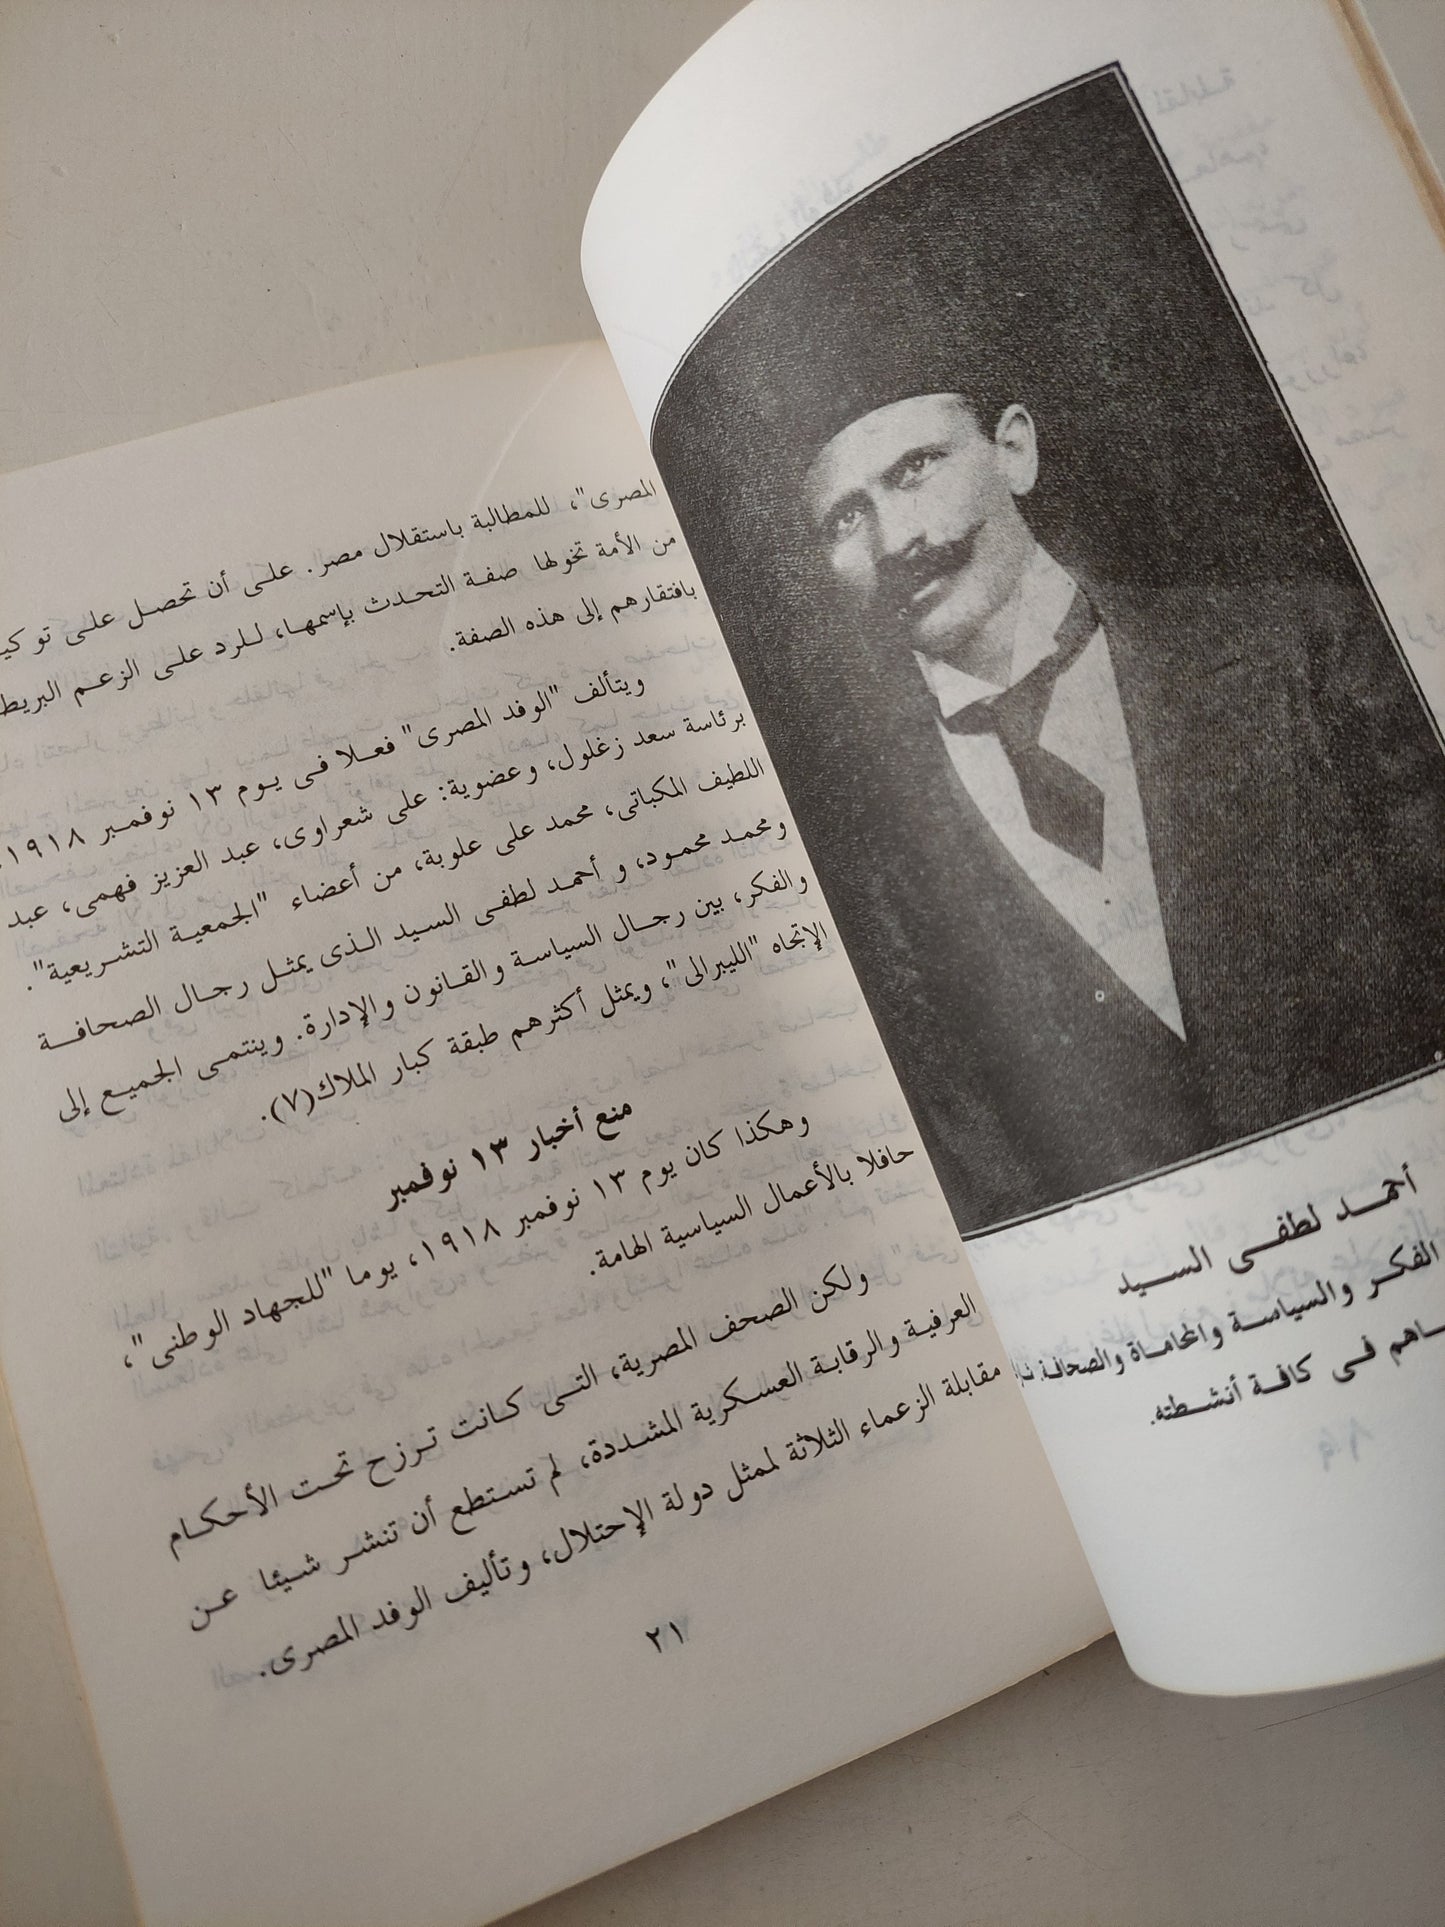 المصرى"، للمطالبة باستقلال مصر. على أن تحصل على
من الأمة تخولها صفة التحدث بإسمها، للرد على الزعم
بافتقارهم إلى هذه الصفة.
ويتألف "الوفد المصرى" فعلا فى يوم ١٣ نوفمبر ١٩١٨،
برئاسة سعد زغلول، وعضوية: على شعراوى، عبد العزيز فهمى، عبد
اللطيف المكباتى، محمد على علوبة، من أعضاء "الجمعية التشريعية".
ومحمد محمود، و أحمد لطفى السيد الذى يمثل رجال الصحافة
والفكر، بين رجال السياسة والقانون والإدارة. وينتمى الجميع إلى
الإتجاه "الليبرالى"، ويمثل أكثرهم طبقة كبار الملاك(٧).
منع أخبار ١٣ نوفمبر
وهكذا كان يوم ١٣ نوفمبر ١٩١٨، يوما "للجهاد الوطنى"،
حافلا بالأعمال السياسية الهامة.
ولكن الصحف المصرية، التى كانت ترزح تحت الأحكام
العرفية والرقابة العسكرية المشددة، لم تستطع أن تنشر شيئا عن
مقابلة الزعماء الثلاثة لممثل دولة الإحتلال، وتأليف الوفد المصرى.
٢١
أحمد لطفى السيد
الفكر والسياسة والمحاماة والصحافة
فى كافة أنشطته.